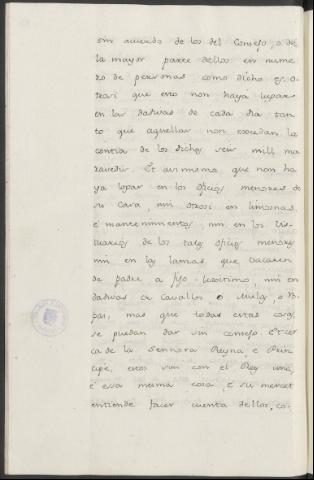 sin acuerdo de los del Consejo, o de
la mayor parte dellos en nume
ro de personas como dicho es. O
trosi que esto non haya lugar
en las dadivas de cada dia tan
to que aquellas non excedan la
contia de los dichos seis mill ma
ravedis. Et asimismo que non ha
ya logar en los oficios menores de
su Casa, nin otrosi en limosnas,
é mantenimientos, nin en los
de los tales oficios menores
nin en las lanzas que vacaren
de padre a fijo lexitimo, nin en
dadivas de Cavallos o Mulas, o Ro
pas, mas que todas estas cosas
se puedan dar sin consejo. Et cer
ca de la Sennora Reyna, e Prin
cipe, estos son con el Rey una,
é essa mesma cosa, é su merced
entiende facer cuenta dellos, co-